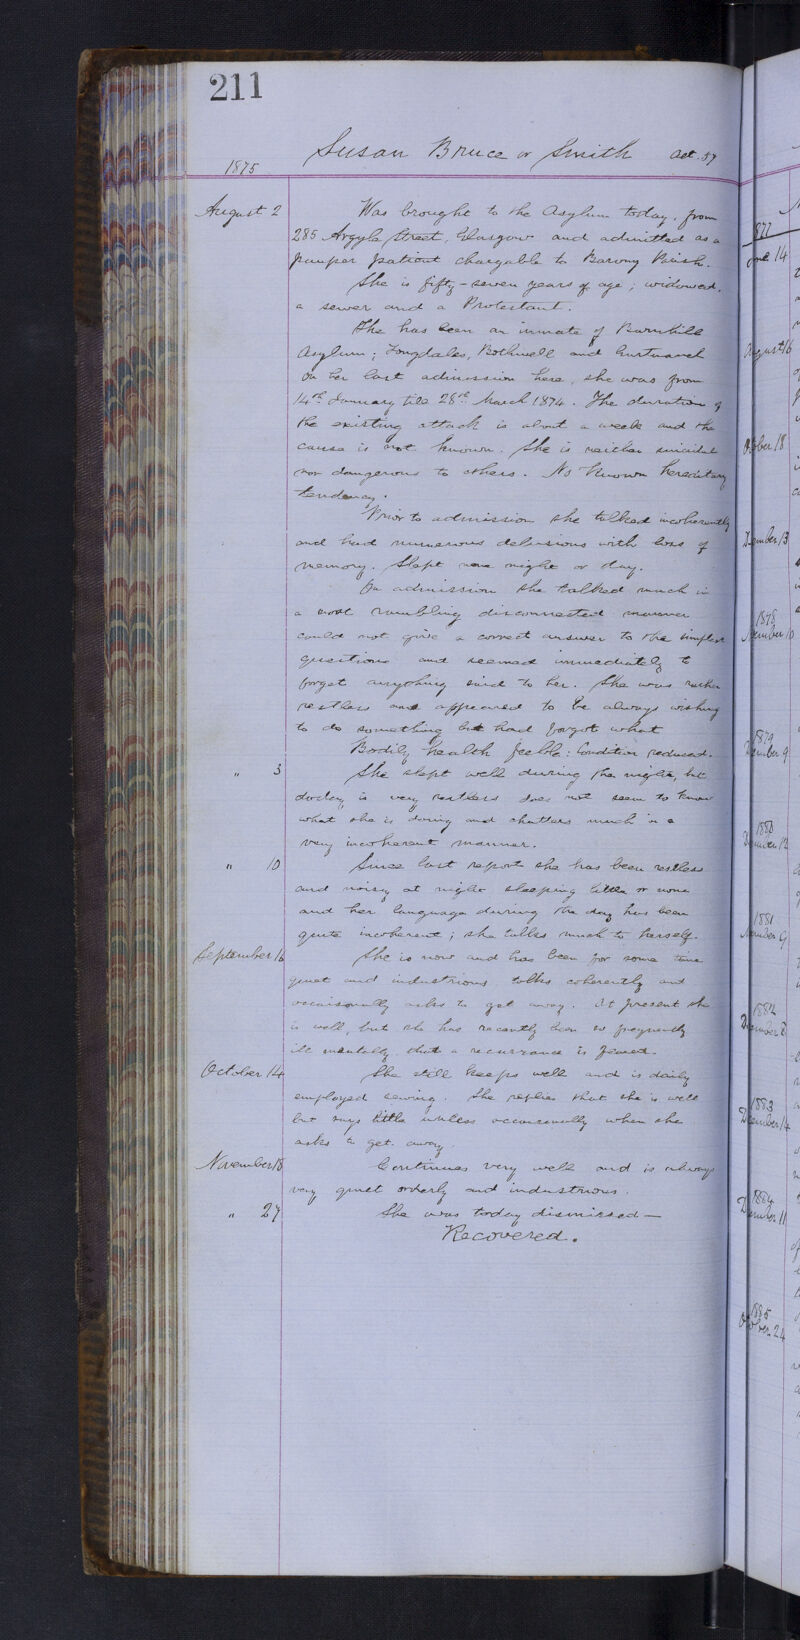 211
Susan Bruce or Smith aet. 57
1875
August 2 Was brought to the Asylum today, from
285 Argyle Street, Glasgow and admitted as a
pauper patient chargable to Barony Parish.
She is fifty-seven years of age; widowed,
a sewer and a Protestant.
She has been an inmate of Barnhill
Asylum; Longdales, Bothwell and Gartnavel
On her last admission here, she was from
14th January till 28th March 1874. The duration of
the existing attack is about a week and the
cause is not known. She is neither suicidal
nor dangerous to others. No known hereditary
tendency.
Prior to admission she talked incoherently
and had numerous delusions with loss of
memory. Slept none night or day.
On admission she talked much in
a most rambling disconnected manner
could not give a correct answer to the simplest
questions and seemed immediately to
forget anything said to her. She was rather
restless and appeared to be always wishing
to do something but had forgot what
Bodily health feeble: Condition reduced.
" 3 She slept well during the night, but
today is very restless does not seem to know
what she is doing and chatters much in a
very incoherent manner.
" 10 Since last report she has been restless
and noisy at night sleeping little or none
and her language during the day has been
quite incoherent; she talks much to herself.
September 16 She is now and has been for some time
quiet and industrious, talks coherently and
occaisonally asks to get away. At present she
is well, but she has recently been so frequently
ill mentally that a recurrance is feared.
October 14 She still keeps well and is daily
employed sewing. She replies that she is well
but says little unless occasionally when she
asks to get away.
November 18 Continues very well and is always
very quiet orderly and industrious.
" 27 She was today dismissed—
Recovered.
1877
June 14
August 16
October 18
December 13
1878
1879
1880
1881
1882
1883
December 14
1884
December 11
1885